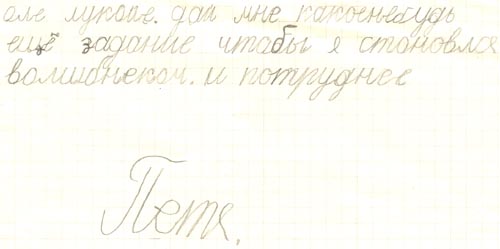 оле лукойе. дай мне какоенебудь
ещё задание чтобы я становлся
волшонеком. и потруднее
Петя.